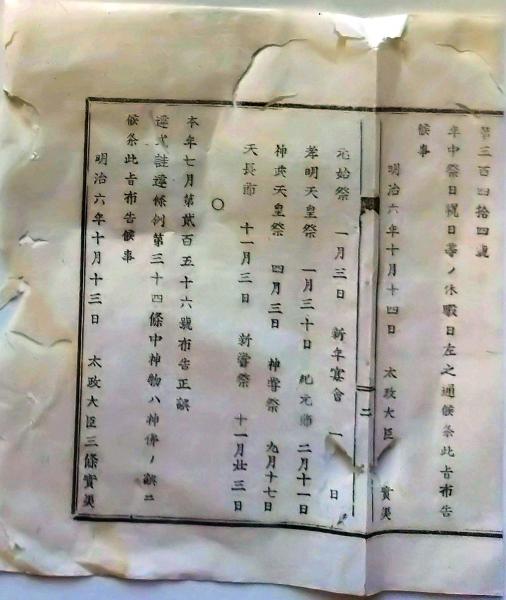 第三百四拾四號
年中祭日祝日等ノ休暇日左之通候条此旨布告
候事
明治六年十月十四日 太政大臣 實美
二
元始祭 一月三日 新年宴會 一 日
孝明天皇祭 一月三十日 紀元節 二月十一日
神武天皇祭 四月三日 神嘗祭 九月十七日
天長節 十一月三日 新嘗祭 十一月廿三日
○
本年七月第貳百五十六號布告正誤
違式詿違條例第三十四條中神物ハ神佛ノ誤ニ
候条此旨布告候事
明治六年十月十三日 太政大臣三條實美